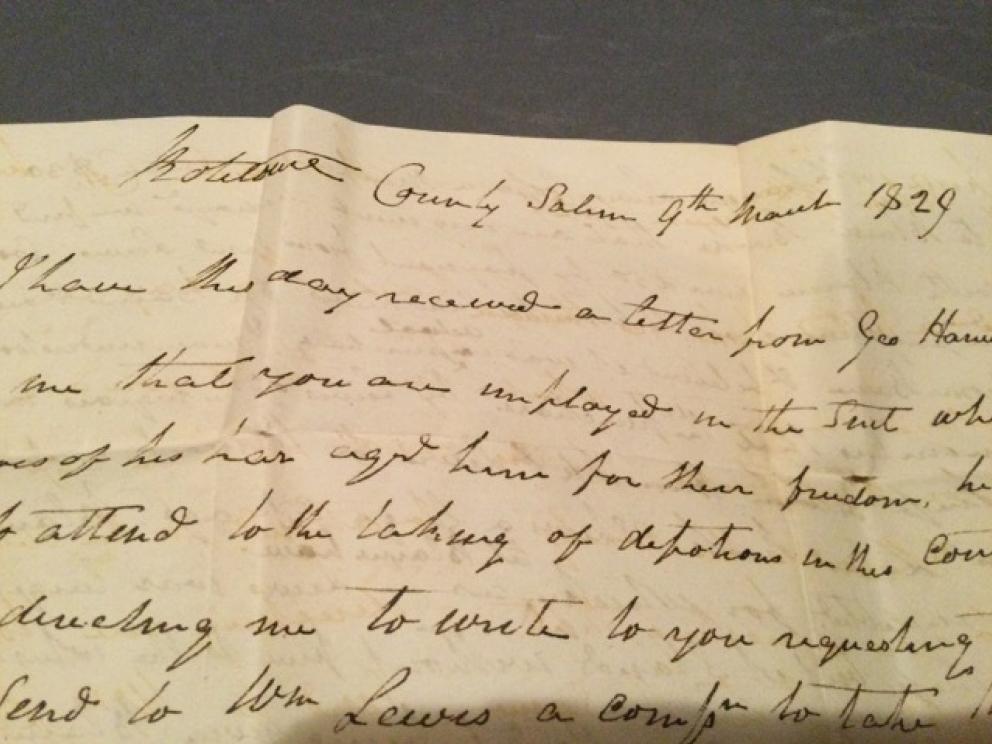 Botetourt County Salem 9th March 1829
I have this day received a letter from Geo
me that you are imployed in the Suit
of his has agst him for their freedom, he
attend to the taking of depotions in this
directing me to write to you requesting
Send to Wm Lewis a compsn to take